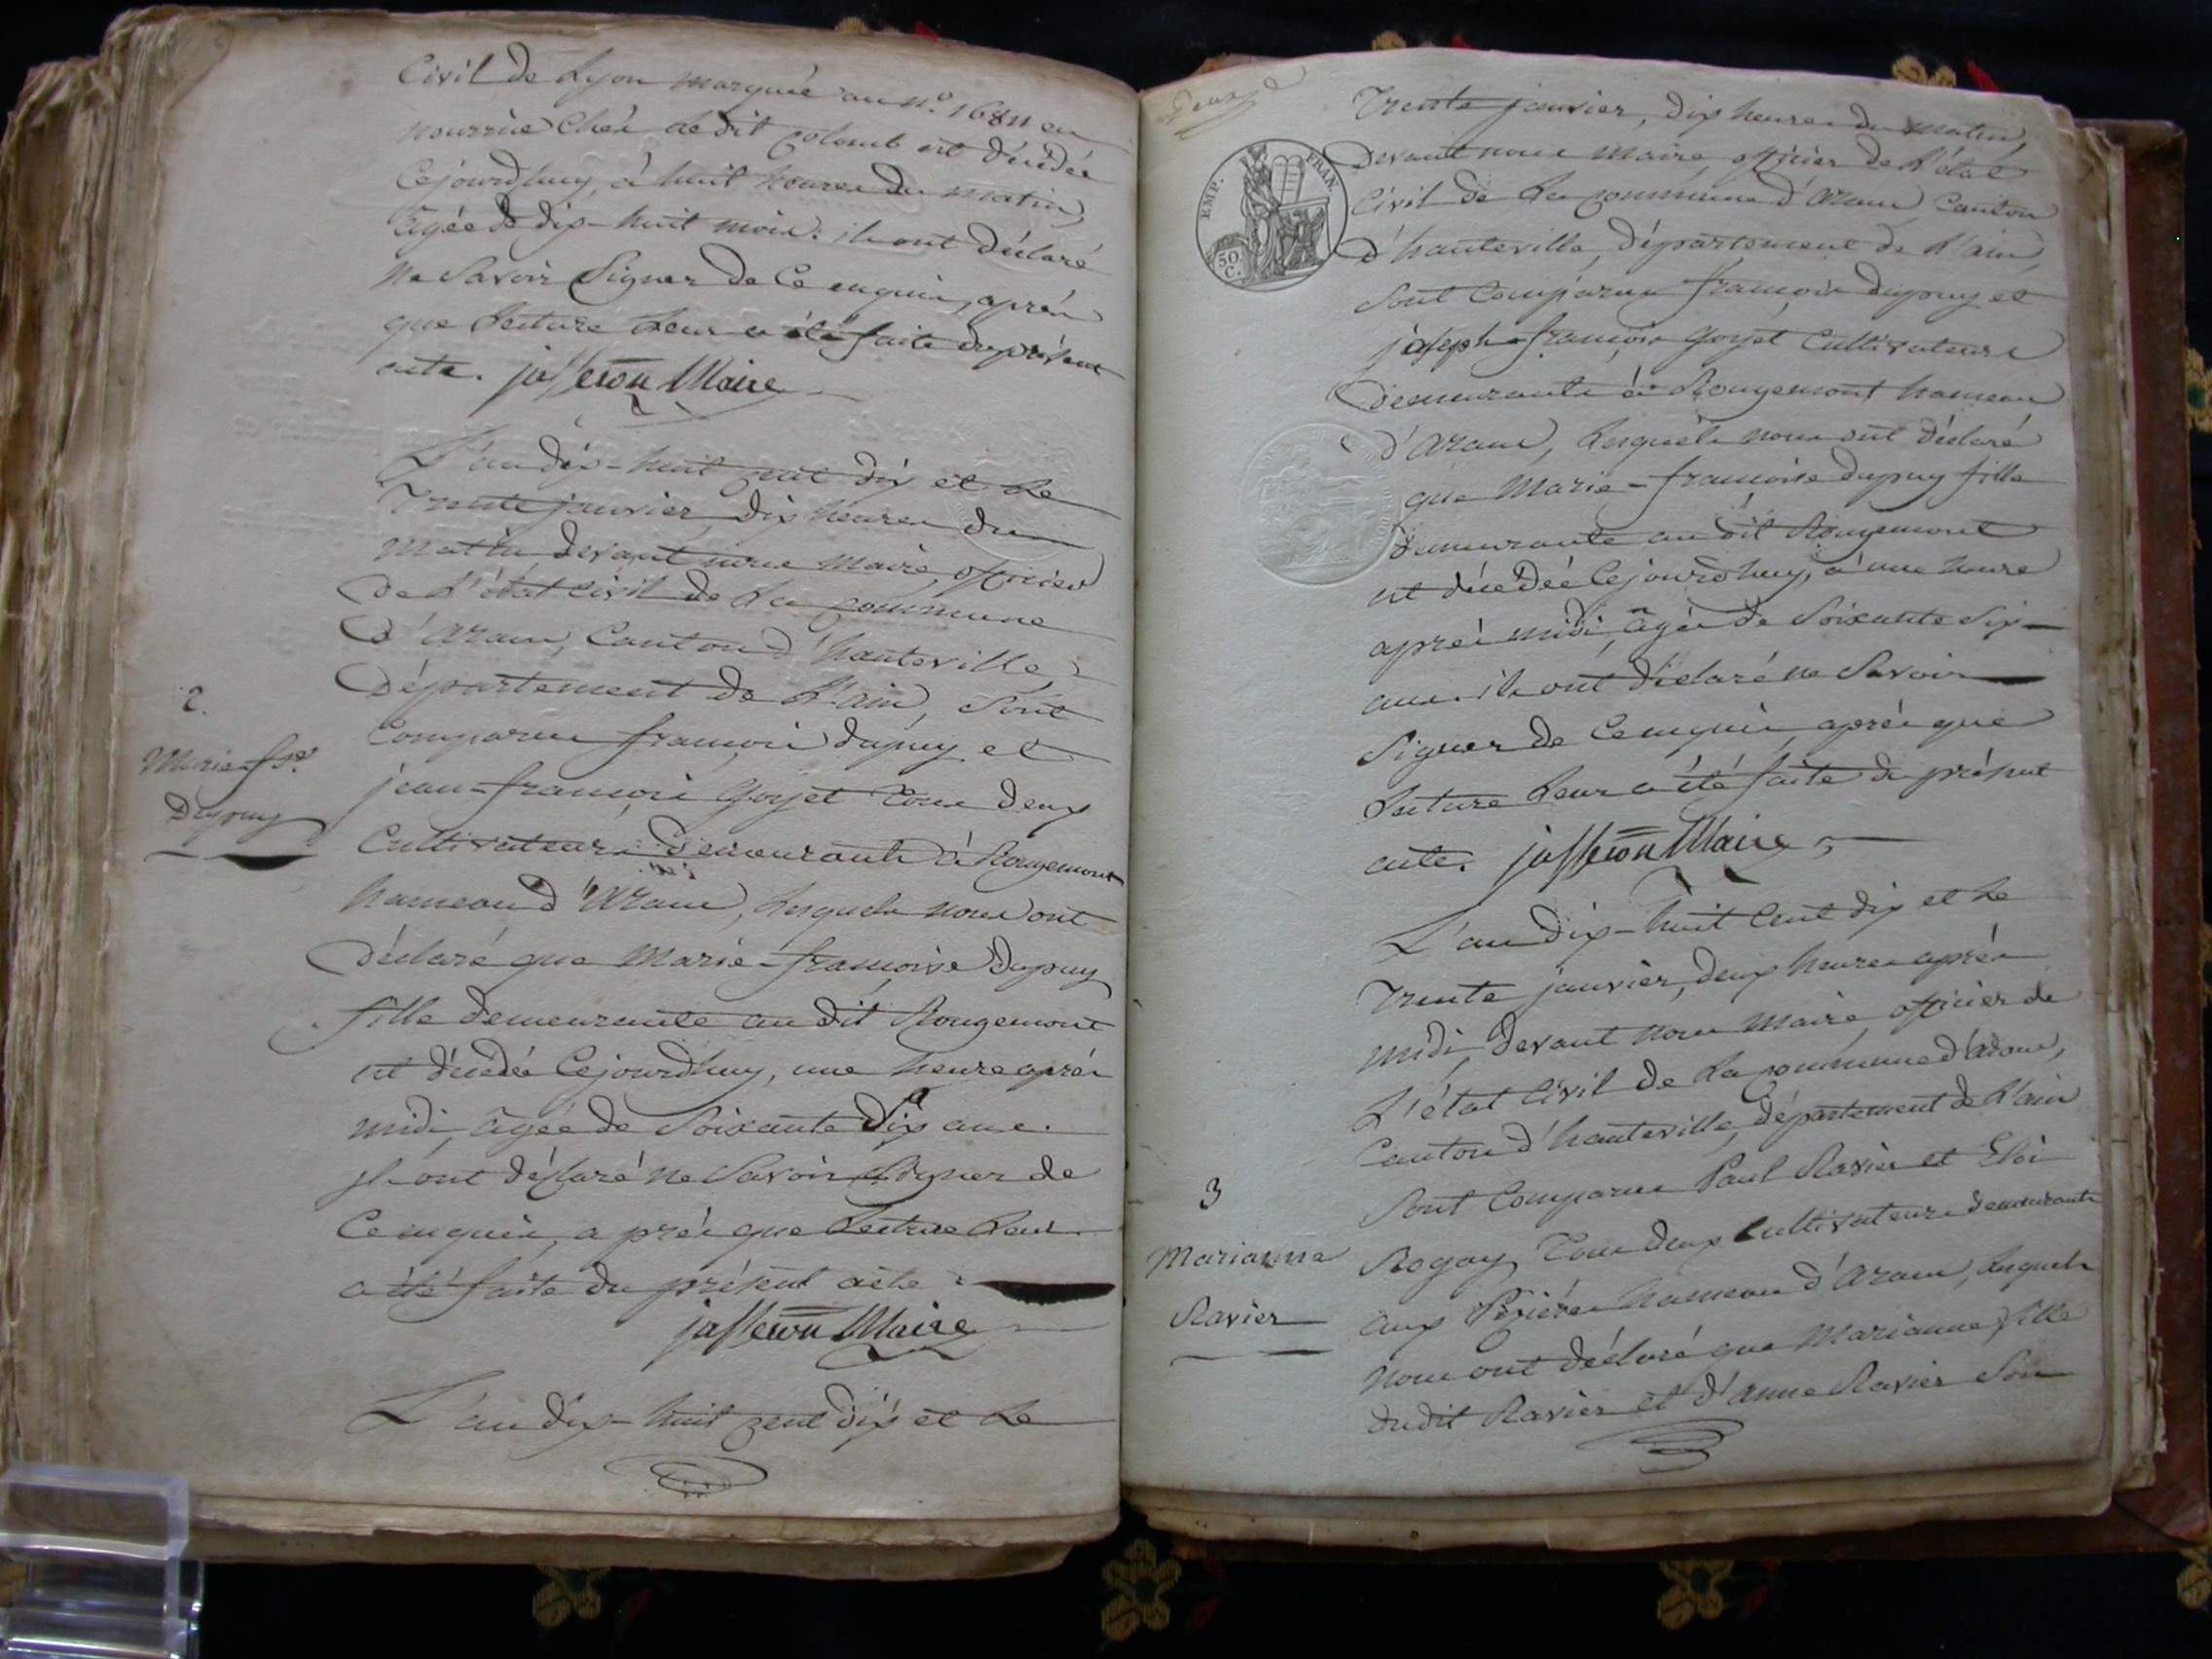 Civil de Lyon marquée au n.º 1684 en
nourrice chés le dit Colomb est décédée
Cejourdhuy, à huit heures du matin,
âgée de dix-huit mois. ils ont déclaré
ne Savoir Signer de Ce enquis, après
que Lecture Leur a été faite du présent
acte. jasseron Maire
L'an dix-huit cent dix et Le
Trente janvier, dix heures du
matin, devant nous maire, officier
de L'état civil de La commune
d'Aranc, Canton d'hauteville,
Département de L'ain, Sont
Comparus françois dupuy et
jean-françois Goyet tous deux
Cultivateurs demeurants à Rougemont
hameau d'Aranc, Lesquels nous ont
déclaré que Marie-françoise Dupuy
fille demeurante au dit Rougemont
est décédée Cejourdhuy, une heure après
midi, âgée de Soixante Six ans.
ils ont déclaré ne Savoir Signer de
Ce enquis, a près que Lecture Leur
a été faite du présent acte.
jasseron Maire
L'an dix-huit cent dix et Le
2.
Marie-fse.
Dupuy
deux
EMP. FRAN.
50 C.
Trente janvier, dix heures du matin,
Devant nous maire officier de L'état
Civil de La commune d'Aranc Canton
d'hauteville, département de L'ain,
Sont Comparus françois dupuy et
joseph-françois Goyet Cultivateurs
demeurants à Rougemont hameau
d'Aranc, Lesquels nous ont déclaré
que Marie-françoise dupuy fille
demeurante au dit Rougemont
est décédée Cejourdhuy, à une heure
après midi, âgée de Soixante Six
ans. ils ont déclaré ne Savoir
Signer de Ce enquis, après que
Lecture Leur a été faite du présent
acte. jasseron Maire
L'an dix-huit Cent dix et Le
Trente janvier, deux heures après
midi, devant nous maire, officier de
L'état Civil de La commune d'Aranc,
Canton d'hauteville, département de L'ain
Sont Comparus Paul Ravier et Eloi
tous deux Cultivateurs demeurants
aux hameau d'Aranc, Lesquels
nous ont déclaré que Marianne fille
dudit Ravier et d'anne Ravier Son
3
Marianne
Ravier